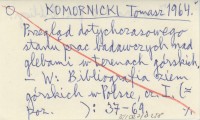 KOMORNICKI Tomasz 1964.
Przegląd dotychczasowego
stanu prac badawczych nad
glebami w terenach górskich.
— W: Bibliografia ziem
górskich w Polsce, cz. I (=
): 37-69.